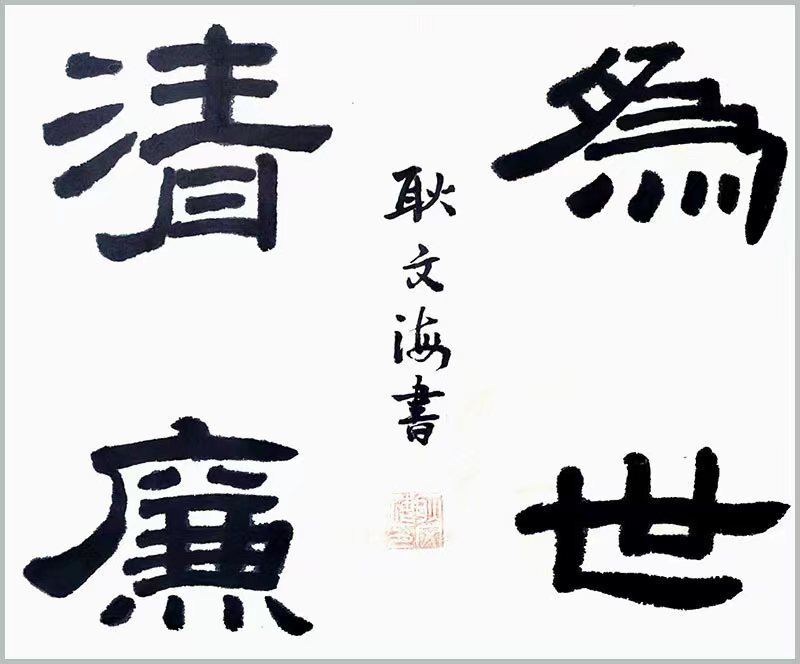 為世
清廉
耿文海書